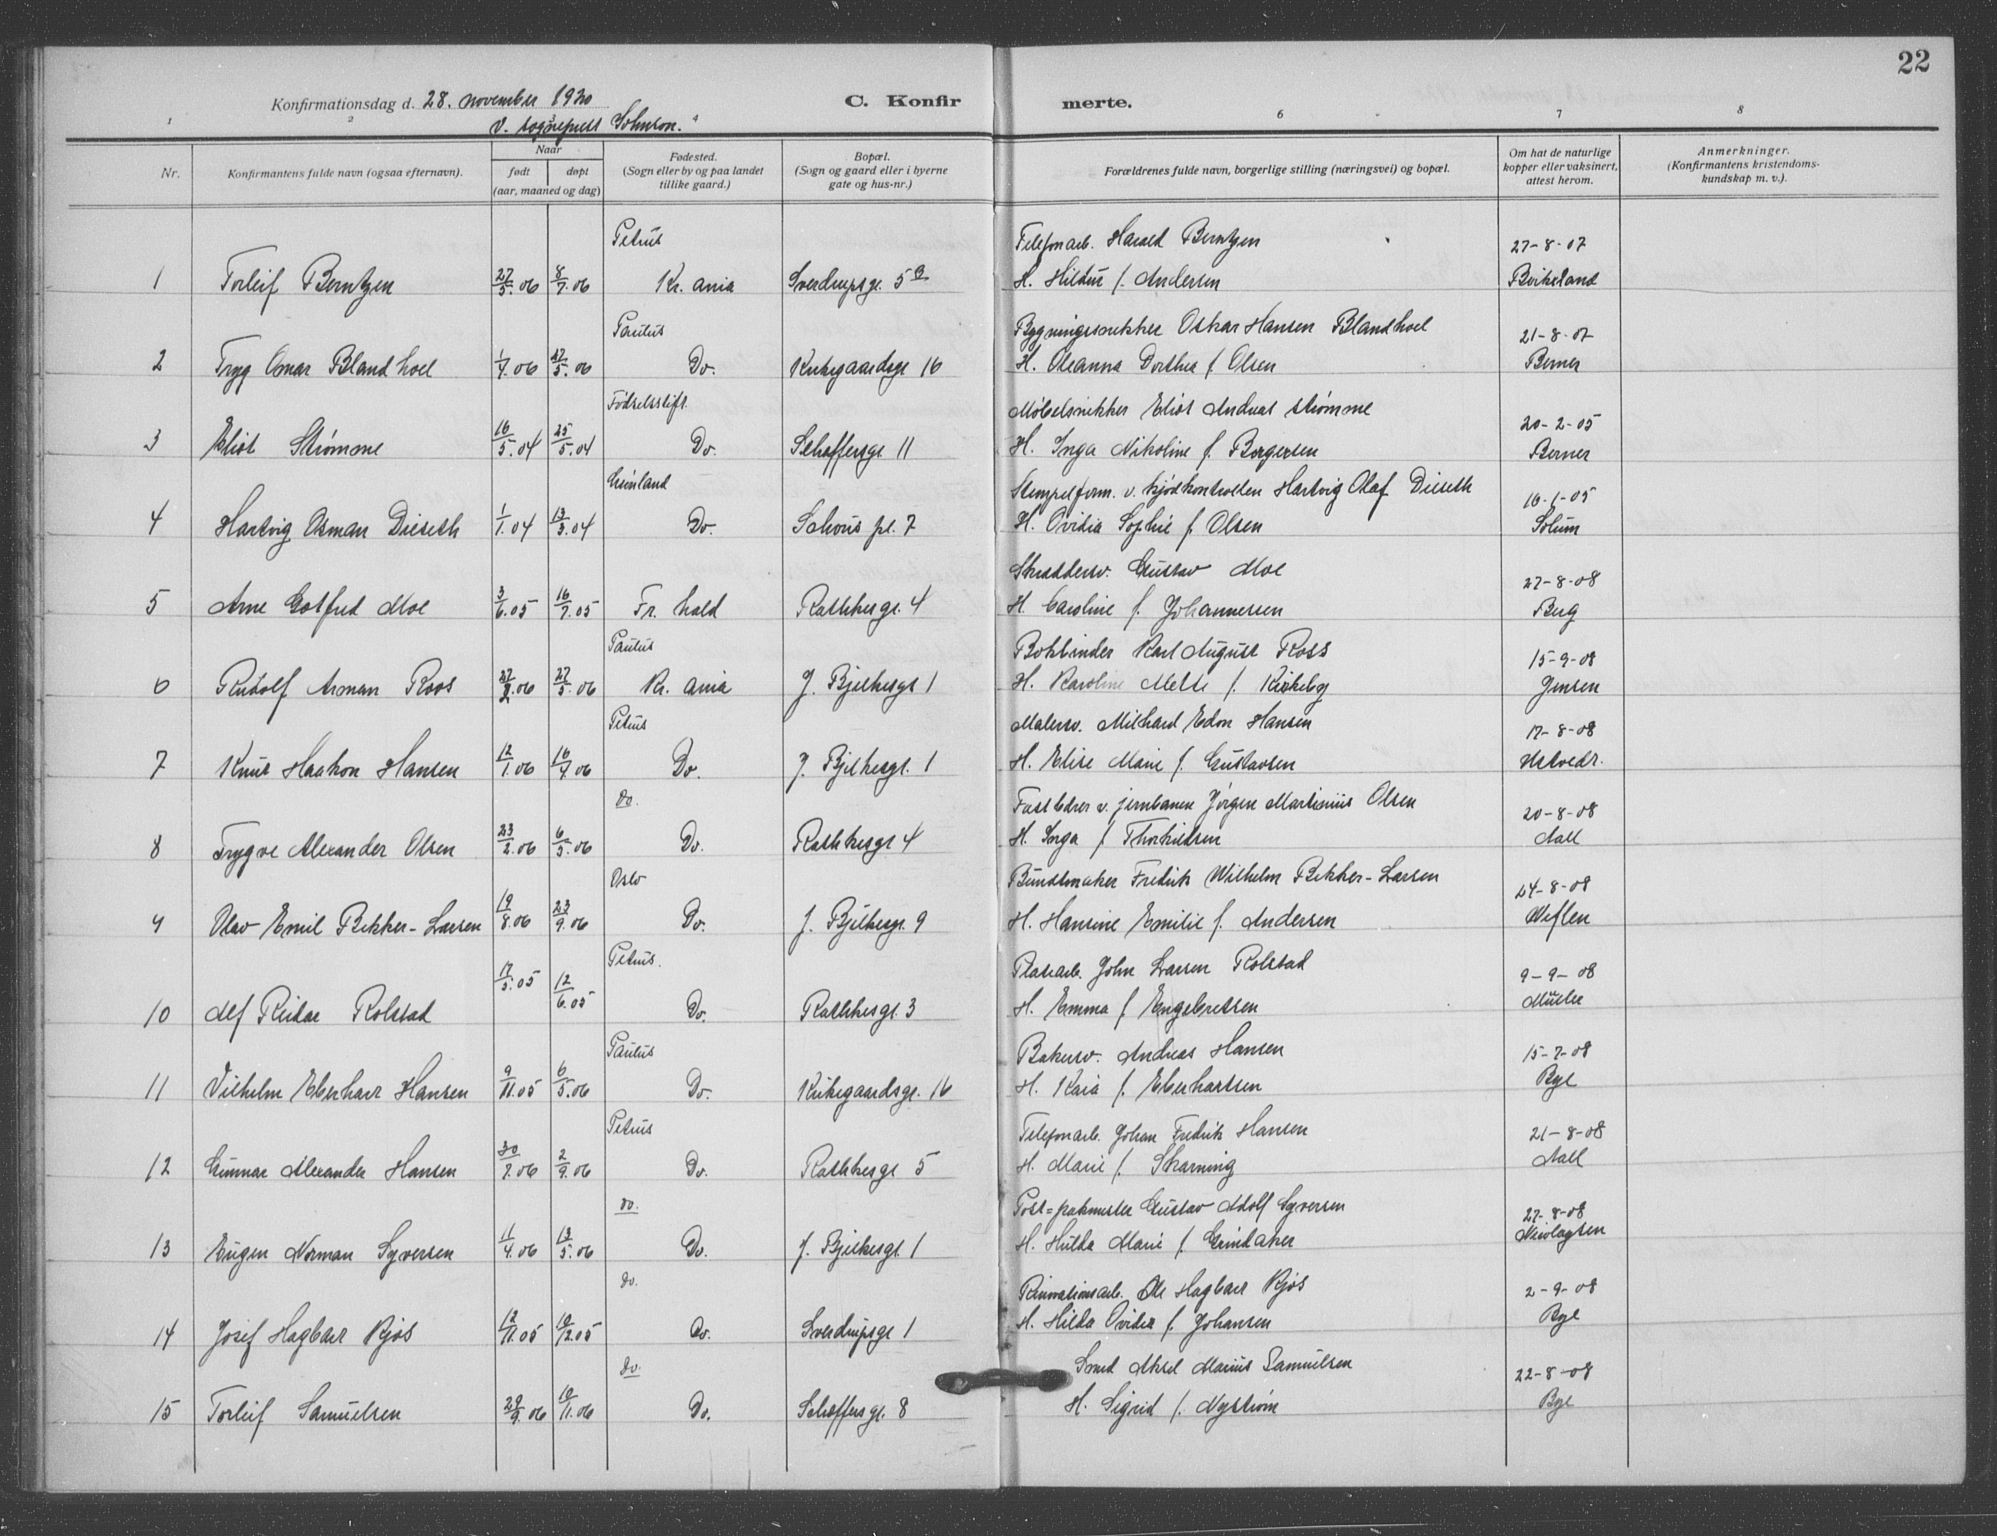 22
Konfirmationsdag d. 28. november 1920
C. Konfirmerte.
v. sogneprest Johnson.
1 2 3 4 5 6 7 8
Nr.
Konfirmantens fulde navn (ogsaa efternavn).
Naar
født døpt
(aar, maaned og dag)
Fødested.
(Sogn eller by og paa landet
tillike gaard.)
Bopæl.
(Sogn og gaard eller i byerne
gate og hus-nr.)
Forældrenes fulde navn, borgerlige stilling (næringsvei) og bopæl.
Om hat de naturlige
kopper eller vaksinert,
attest herom.
Anmerkninger.
(Konfirmantens kristendoms-
kundskap m. v.).
Petrus Telefonarb. Harald Berntzen 27-8-07
1 Torleif Berntzen 27/5.06 8/7.06 Kr.ania Sverdrupsgt. 5B H. Hildur f. Andersen Birkeland
Paulus Bygningssnekker Oskar Hansen Blandhoel 21-8-07
2 Tryg Omar Blandhoel 1/4.06 27/5.06 Do. Kirkegaardsgt 16 H. Oleanna Dorthea f. Olsen Berner
Fødselsstift. Møbelsnekker Eliot Andreas Strømme 20-2-05
3 Eliot Strømme 16/5.04 25/5.04 Do. Schæffersgt 11 H. Inga Nikoline f. Borgersen Berner
Grønland Stempelform. v. kjødkontrollen Hartvig Olaf Dieseth 16-1-05
4 Hartvig Osman Dieseth 1/1.04 13/3.04 Do. Schous pl. 7 H. Ovidia Sophie f. Olsen Solum
Skræddersv. Gustav Moe 27-8-08
5 Arne Gotfred Moe 3/6.05 16/7.05 Fr.hald Rathkesgt. 4 H. Caroline f. Johannessen Berg
Paulus Bokbinder Karl August Roos 15-9-08
6 Rudolf Arman Roos 27/2.06 27/5.06 Kr.ania J. Bjelkesgt 1 H. Karoline Mette f. Kirkeby Jensen
Petrus Malersv. Milhard Edon Hansen 17-8-08
7 Knut Haakon Hansen 12/1.06 16/4.06 Do. J. Bjelkesgt. 1 H. Elise Marie f. Gustavsen Hstvedt.
do. Fastlører v. jernbanen Jørgen Martinius Olsen 20-8-08
8 Trygve Alexander Olsen 23/2.06 6/5.06 Do. Rathkesgt 4 H. Inga f. Thorkildsen Aall
Oslo Buntmaker Fredrik Wilhelm Bekker-Larsen 24-8-08
9 Olav Emil Bekker-Larsen 19/8.06 23/9.06 Do. J. Bjelkesgt. 9 H. Hansine Emilie f. Andersen Weflen
Petrus. Platearb. John Larsen Rolstad 9-9-08
10 Alf Reidar Rolstad 17/5.05 12/6.05 Do. Rathkesgt. 3 H. Emma f. Engebretsen Müller
Paulus Bakersv. Andreas Hansen 15-7-08
11 Vilhelm Eberhart Hansen 9/11.05 6/5.06 Do. Kirkegaardsgt. 16 H. Kaia f. Eberhartsen Bye
Petrus Telefonarb. Johan Fredrik Hansen 21-8-08
12 Gunnar Alexander Hansen 30/7.06 2/9.06 Do. Rathkesgt 5 H. Marie f. Skarning Aall
do. Post=pakmester Gustav Adolf Syversen 27-8-08
13 Eugen Norman Syversen 11/4.06 13/5.06 Do. J. Bjelkesgt. 1 H. Hulda Marie f. Grindaker Nicolaysen
do. Renovationsarb. Ole Hagbart Kjos 2-9-08
14 Josef Hagbart Kjos 12/11.05 10/12.05 Do. Sverdrupsgt 1 H. Hilda Ovidia f. Johansen Bye
do. Smed Aksel Marius Samuelsen 22-8-08
15 Torleif Samuelsen 29/9.06 10/11.06 Do. Schæffersgt. 8 H. Sigrid f. Nystrøm Bye